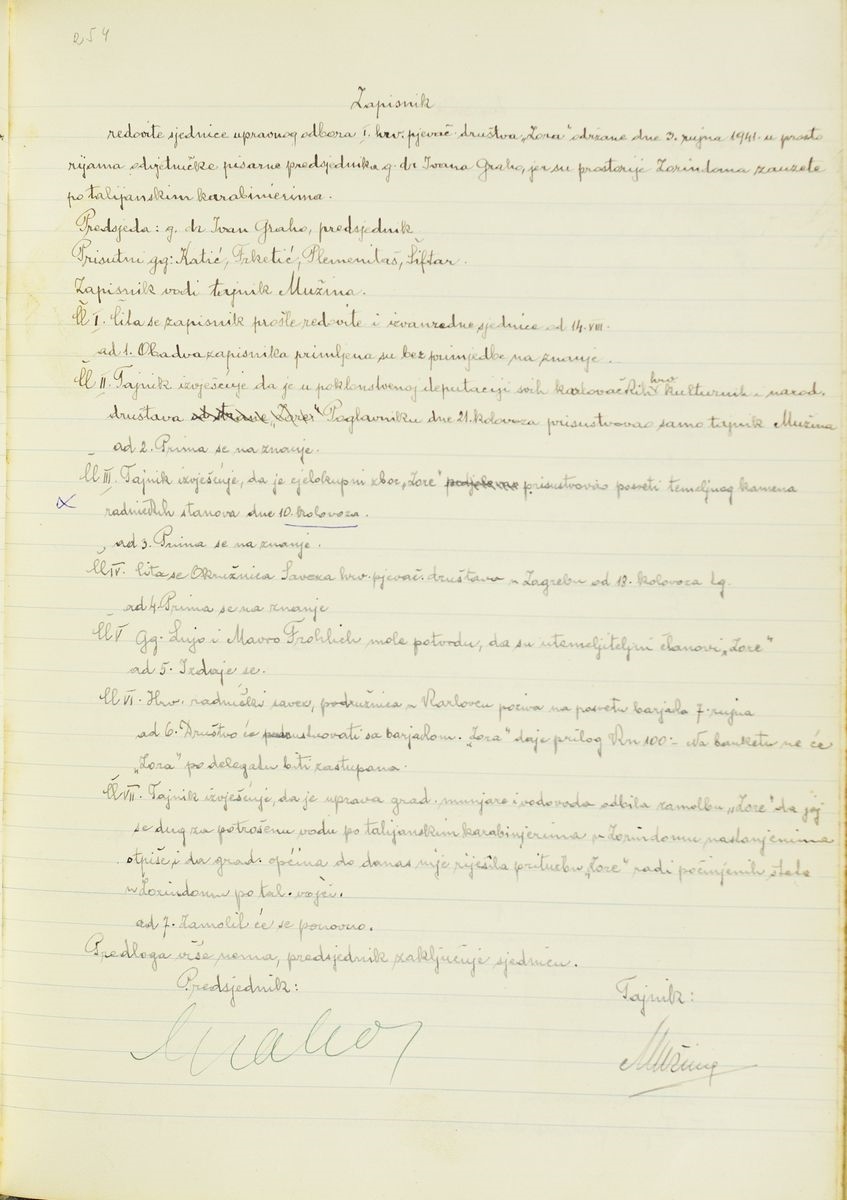 254
Zapisnik
redovite sjednice upravnog odbora I. hrv. pjevač. društva „Zora“ održane dne 3. rujna 1941. u prosto
rijama odvjetničke pisarne predsjednika g. dr Ivana Graho, jer su prostorije Zorindoma zauzete
po talijanskim karabinierima.
Predsjeda: g. dr Ivan Graho, predsjednik
Prisutni gg: Katić, Frketić, Plemenitaš, Šiftar.
Zapisnik vodi tajnik Mužina.
Čl I. Čita se zapisnik prošle redovite i izvanredne sjednice od 14. VIII.
ad 1. Obadva zapisnika primljena su bez primjedbe na znanje.
Čl II. Tajnik izvješćuje da je u poklonstvenoj deputaciji svih karlovačkih hrv kulturnih i narod.
društava Poglavniku dne 21. kolovoza prisustvovao samo tajnik Mužina
ad 2. Prima se na znanje.
Čl III. Tajnik izvješćuje, da je cjelokupni zbor „Zore“ prisustvovao posveti temeljnog kamena
radničkih stanova dne 10. kolovoza.
ad 3. Prima se na znanje.
Čl IV. Čita se Okružnica Saveza hrv. pjevač. društava u Zagrebu od 18. kolovoza t.g.
ad 4. Prima se na znanje
Čl V Gg. Lujo i Mavro Frohlich mole potvrdu, da su utemeljiteljni članovi „Zore“
ad 5. Izdaje se.
Čl VI. Hrv. radnički savez, podružnica u Karlovcu poziva na posvetu barjaka 7. rujna
ad 6. Društvo će sa barjakom. „Zora“ daje prilog Kn 100:- Na banketu ne će
„Zora“ po delegatu biti zastupana.
Čl VII. Tajnik izvješćuje, da je uprava grad. munjare i vodovoda odbila zamolbu „Zore“ da joj
se dug za potrošenu vodu po talijanskim karabinjerima u Zorindomu nastanjenima
otpiše i da grad. općina do danas nije riješila pritužbu „Zore“ radi počinjenih šteta
u Zorindomu po tal. vojsci.
ad 7. Zamolit će se ponovno.
Predloga više nema, predsjednik zaključuje sjednicu.
Predsjednik:
Tajnik:
Graho
Mužina